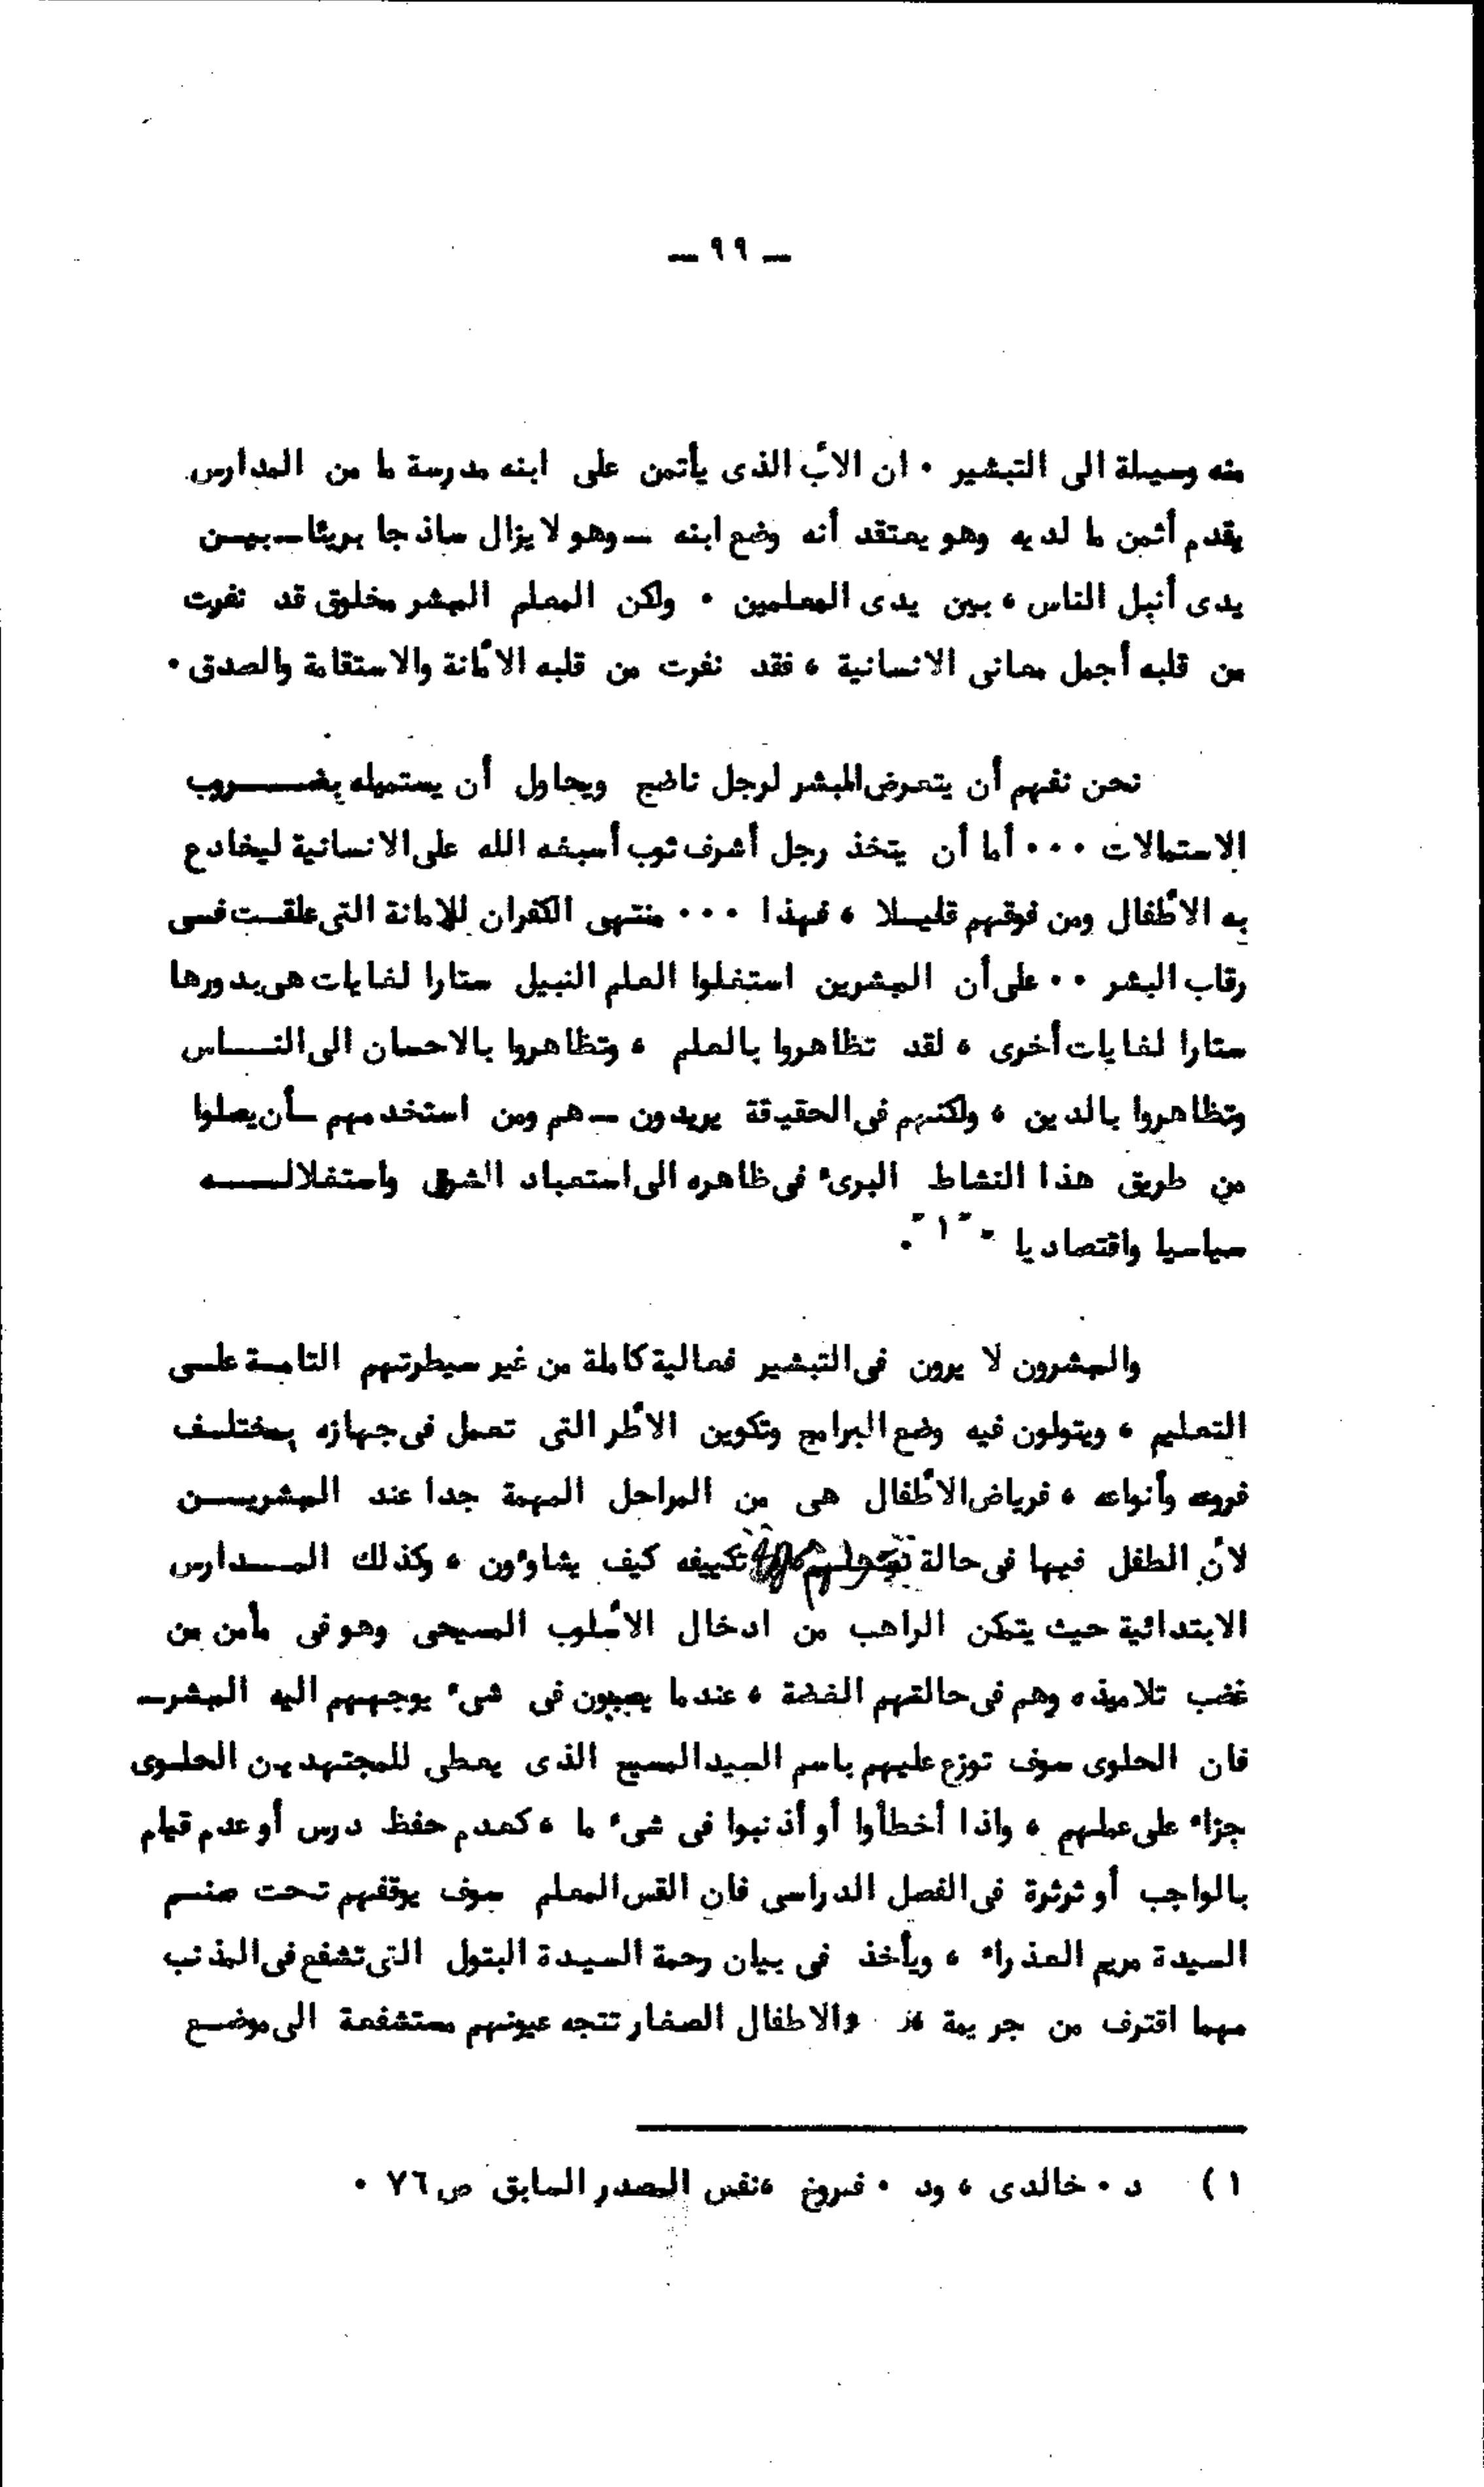 ـ ٩٩ ـ
منه وسيلة الى التبشير ٠ ان الأب الذى يأتمن على ابنه مدرسة ما من المدارس
يقدم أثمن ما لديه وهو يعتقد أنه وضع ابنه ــ وهو لا يزال ساذجا بريئا ــ بيــن
يدى أنبل الناس ، بين يدى المعلمين ٠ ولكن المعلم المبشر مخلوق قد نفرت
من قلبه أجمل معانى الانسانية ، فقد نفرت من قلبه الأمانة والاستقامة والصدق ٠
نحن نفهم أن يتعرض المبشر لرجل ناضج ويحاول أن يستميله بضـــــروب
الاستمالات ٠٠٠ أما أن يتخذ رجل أشرف ثوب أسبغه الله على الانسانية ليخادع
به الأطفال ومن فوقهم قليــلا ، فهذا ٠٠٠ منتهى الكفران للامانة التى علقــت فــى
رقاب البشر ٠٠ على أن المبشرين استغلوا العلم النبيل ستارا لغايات هى بدورها
ستارا لغايات أخرى ، لقد تظاهروا بالعلم ، وتظاهروا بالاحسان الى النـــاس
وتظاهروا بالدين ، ولكنهم فى الحقيقة يريدون ــ هم ومن استخدمهم ــ أن يصلوا
من طريق هذا النشاط البرىء فى ظاهره الى استعباد الشرق واستغلالــــه
سياسيا واقتصاديا " "١" ٠
والمبشرون لا يرون فى التبشير فعالية كاملة من غير سيطرتهم التامــة علــى
التعليم ، ويتولون فيه وضع البرامج وتكوين الأطر التى تعمل فى جهازه بمختلــف
فروعه وأنواعه ، فرياض الأطفال هى من المراحل المهمة جدا عند المبشريـــن
لأن الطفل فيها فى حالة تكييفه كيف يشاوءون ، وكذلك المـــدارس
الابتدائية حيث يتمكن الراهب من ادخال الأسلوب المسيحى وهو فى مأمن من
غضب تلاميذه وهم فى حالتهم الغضة ، عندما يصيبون فى شىء يوجههم اليه المبشر ــ
فان الحلوى سوف توزع عليهم باسم السيد المسيح الذى يعطى للمجتهدين الحلــوى
جزاء على عملهم ، واذا أخطأوا أو أذنبوا فى شىء ما ، كعدم حفظ درس أو عدم قيام
بالواجب أو ثرثرة فى الفصل الدراسى فان القس المعلم سوف يوقفهم تحت صنــم
السيدة مريم العذراء ، ويأخذ فى بيان رحمة السيدة البتول التى تشفع فى المذنب
مهما اقترف من جريمة والاطفال الصغار تتجه عيونهم مستشفعة الى موضــع
١) د ٠ خالدى ، ود ٠ فروخ ، نفس المصدر السابق ص ٧٦ ٠